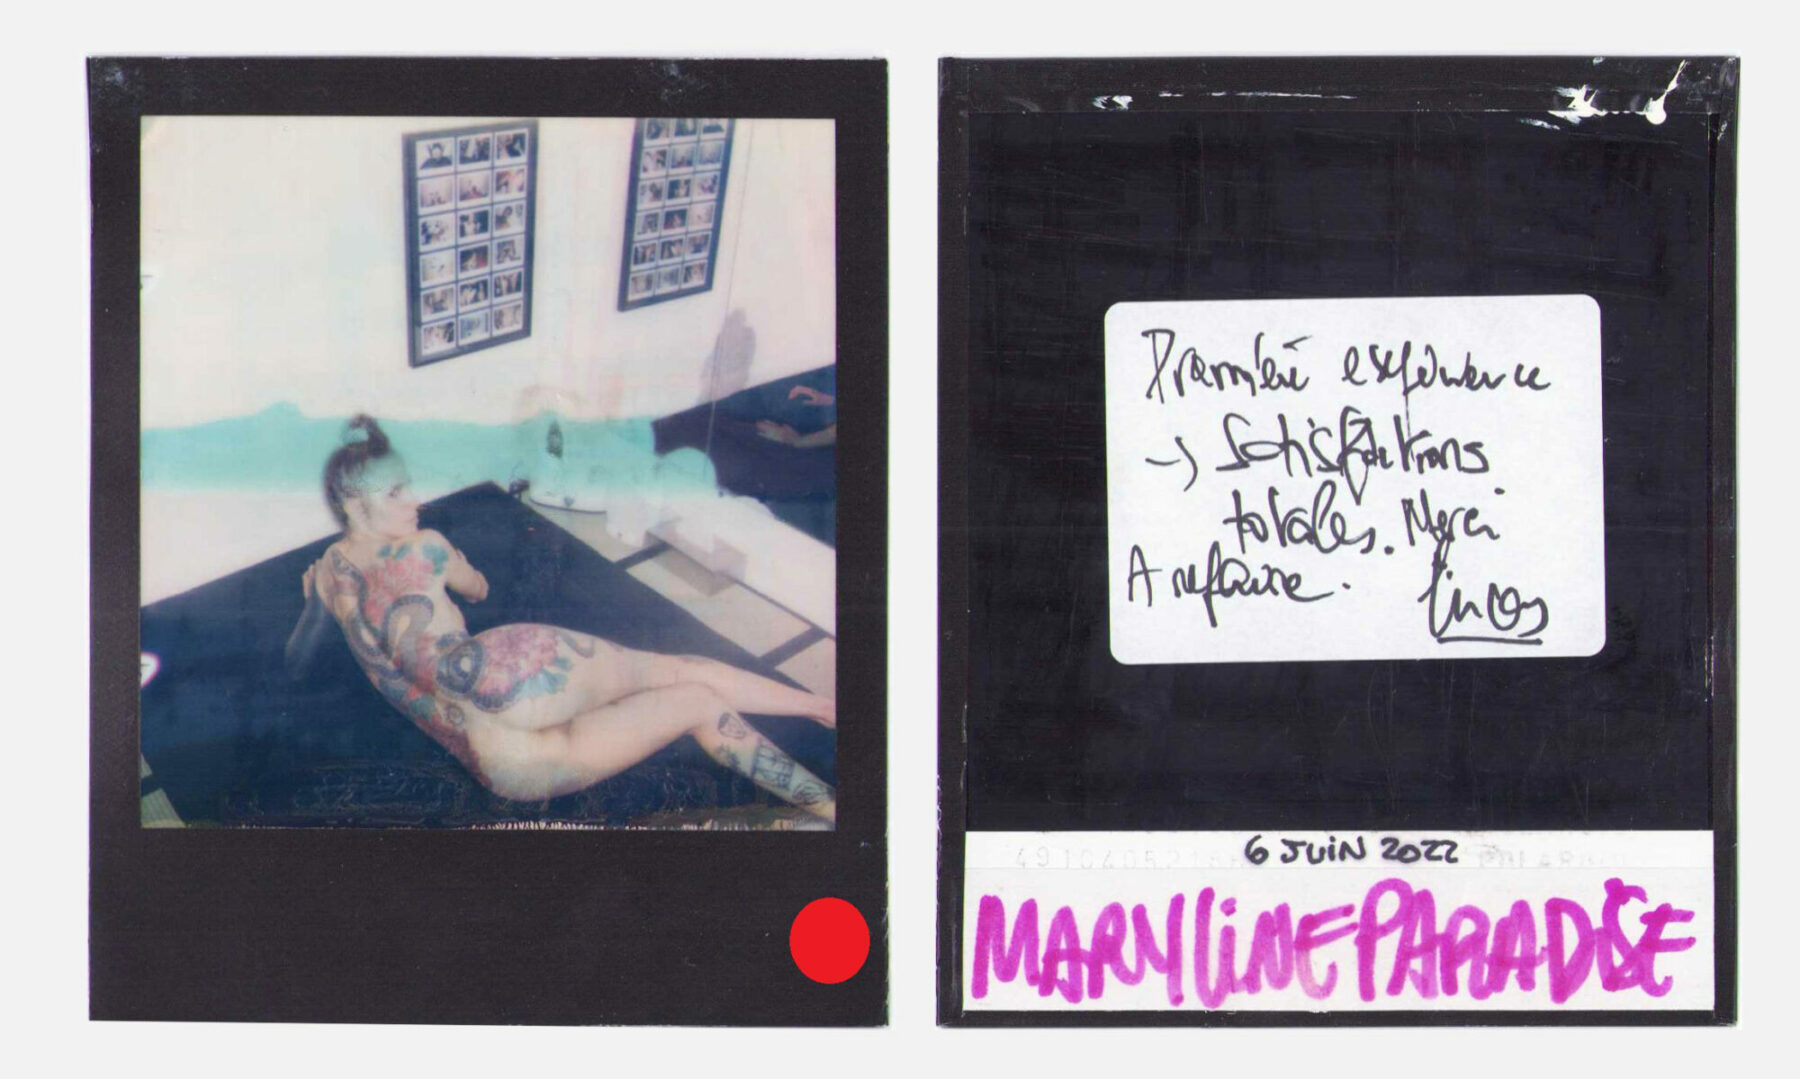 Première expérience
→ Satisfactions
totales. Merci
A refaire.
6 JUIN 2022
MARYLINE PARADISE